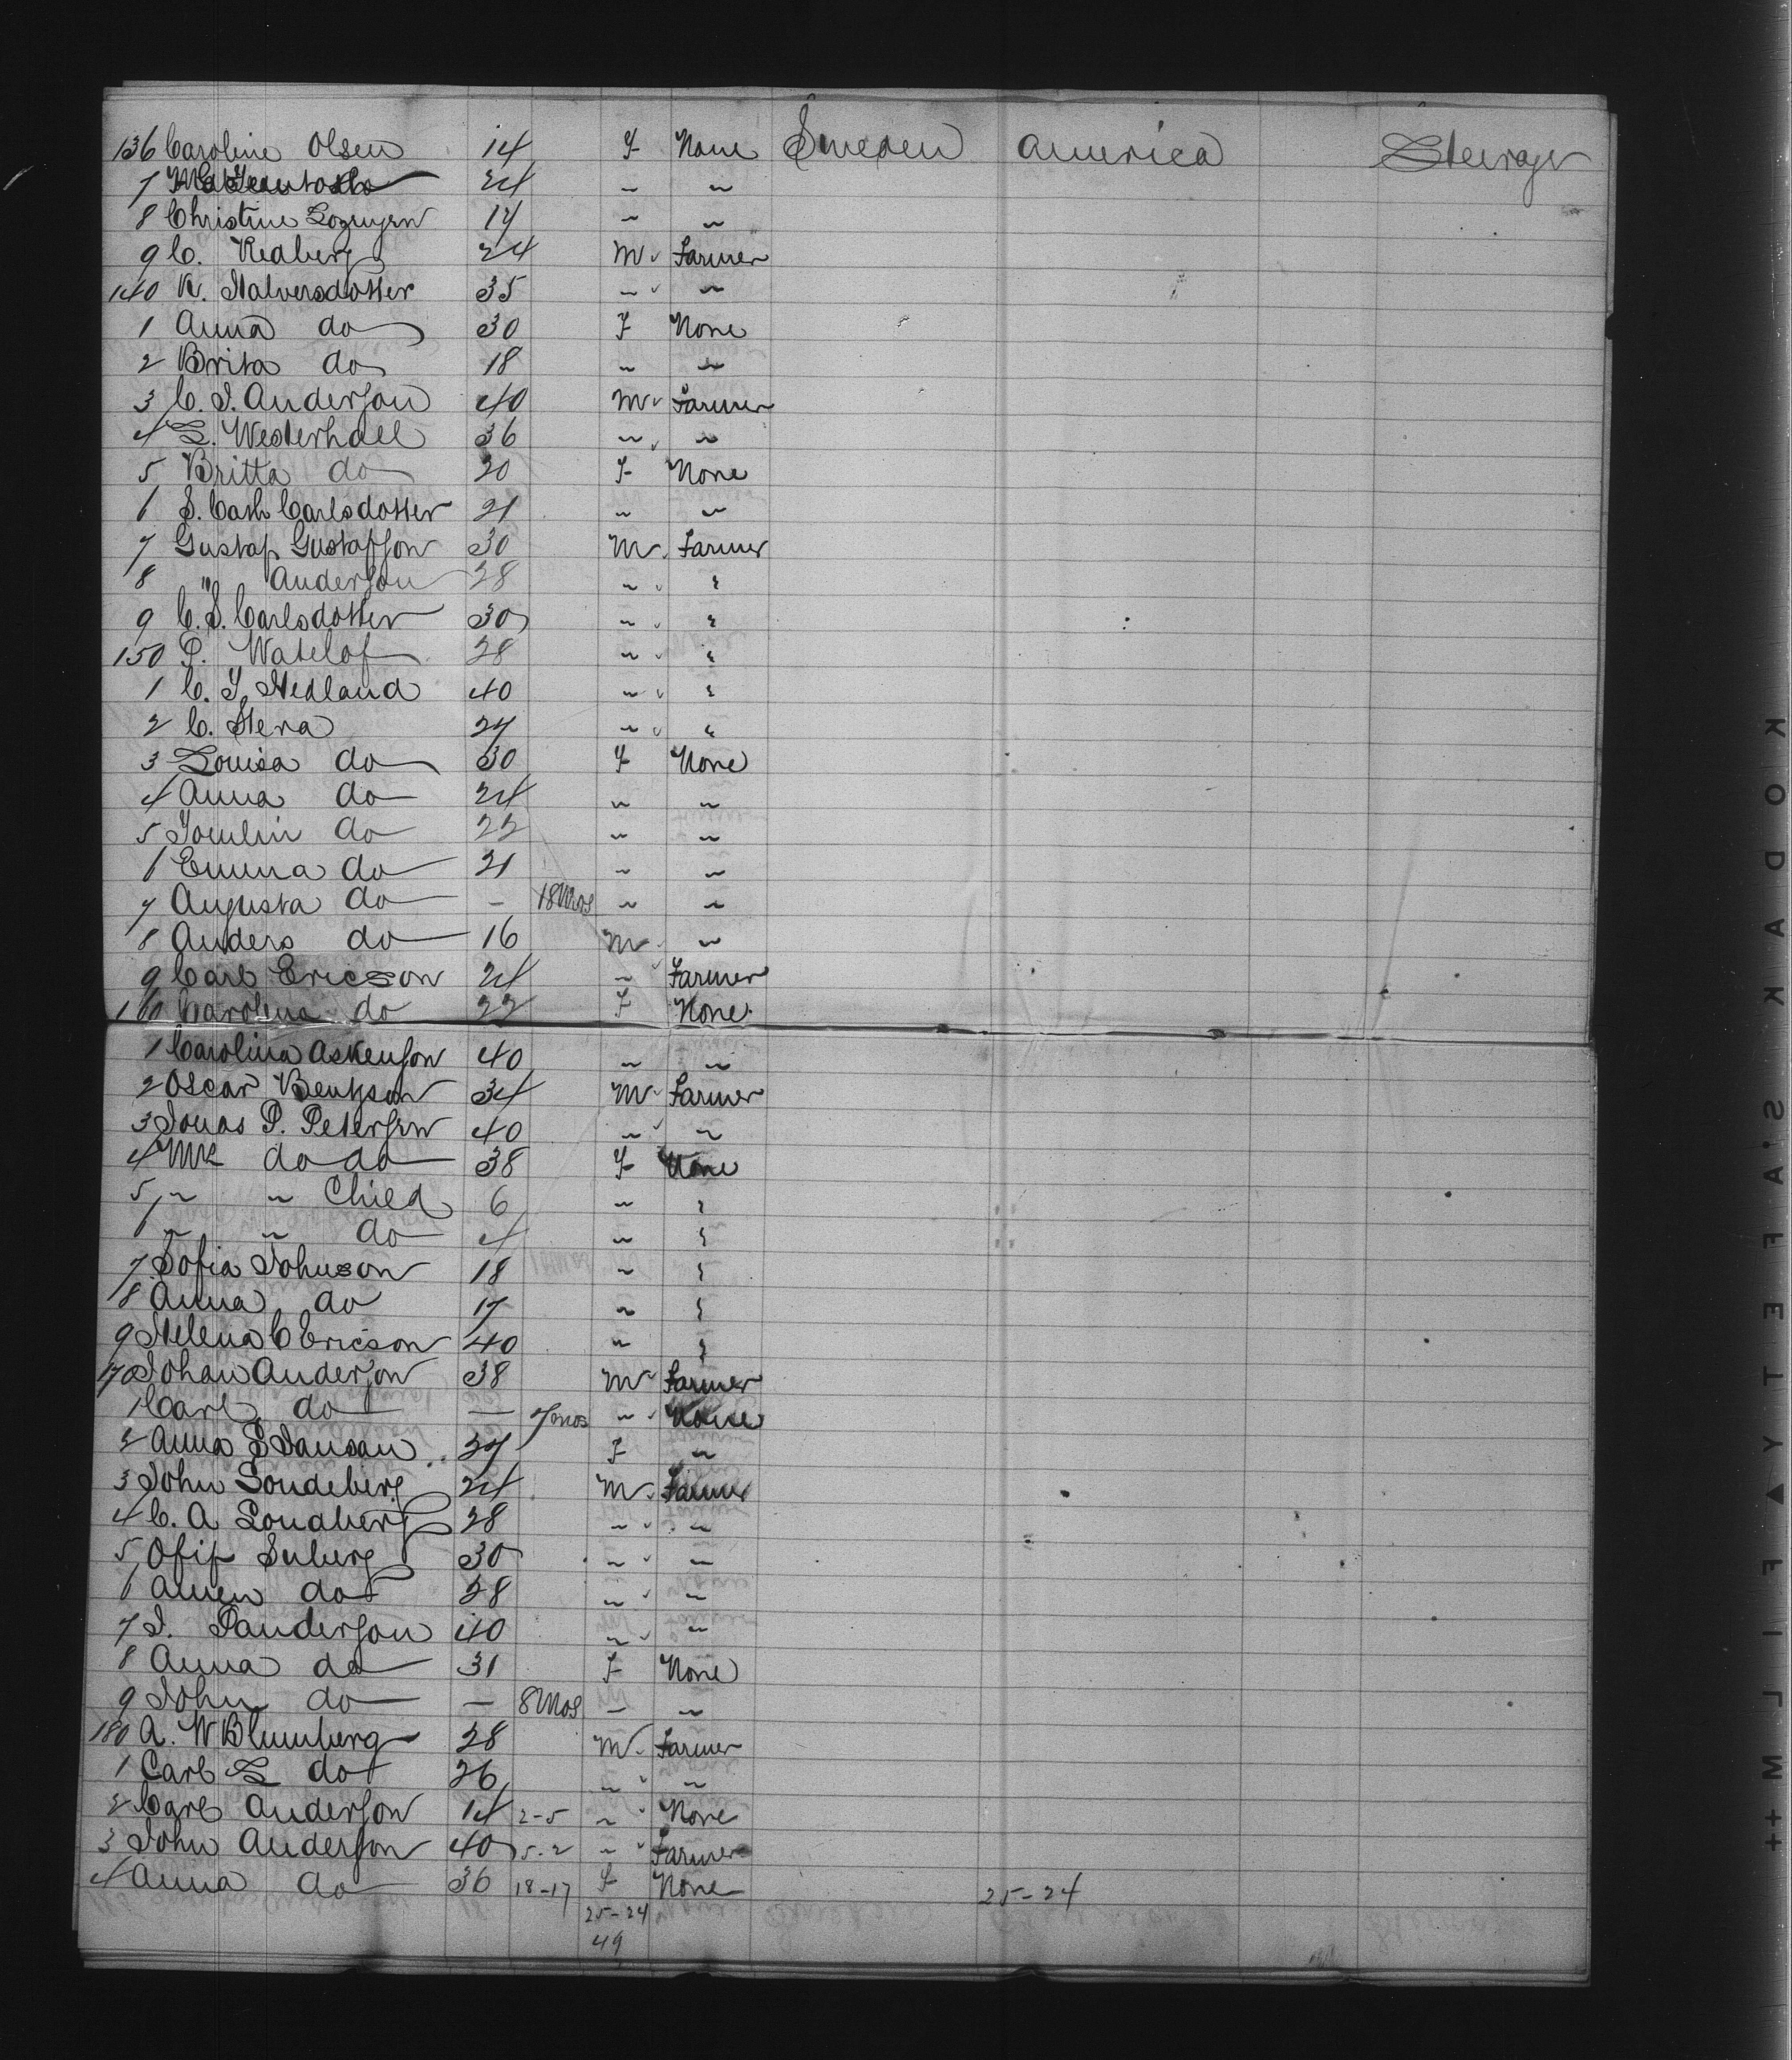 136 Caroline Olsen 14 F None Sweden America Steerage
7 24 " "
8 Christine 17 " "
9 C. Redberg 24 M Farmer
140 K. Halversdotter 35 " "
1 Anna do 30 F None
2 Brita do 18 " "
3 C. J. Anderson 40 M Farmer
4 L. Westerhall 36 " "
5 Britta do 20 F None
6 S. Cath Carlsdotter 21 " "
7 Gustaf Gustafson 30 M Farmer
8 " Anderson 28 " "
9 C. S. Carlsdotter 30 " "
150 P. Watelof 28 " "
1 C. J. Hedland 40 " "
2 C. Stera 27 " "
3 Louisa do 30 F None
4 Anna do 24 " "
5 do 22 " "
6 Emma do 21 " "
7 Augusta do - 18 Mos " "
8 Anders do 16 M "
9 Carl Ericson 24 " Farmer
160 Carolina do 22 F None
1 Carolina Askenson 40 " "
2 Oscar Bentson 34 M Farmer
3 Jonas P. Petersen 40 " "
4 do do 38 F None
5 " " Child 6 " "
6 " " do 4 " "
7 Sofia Johnson 18 " "
8 Anna do 17 " "
9 Helena C Ericson 40 " "
170 Johan Anderson 38 M Farmer
1 Carl do - 7 mos " None
2 Anna S Jansan 27 F "
3 John Sondeberg 24 M Farmer
4 C. A Sondberg 28 " "
5 Suberg 30 " "
6 do 28 " "
7 J. Sanderson 40 " "
8 Anna do 31 F None
9 John do - 8 Mos - "
180 A. W Blumberg 28 M Farmer
1 Carl L do 26 " "
2 Carl Anderson 14 2-5 " None
3 John Anderson 40 5-2 " Farmer
4 Anna do 36 18-17 F None 25-24
25-24
49
KODAK S'AFETY ▲ FILM ++